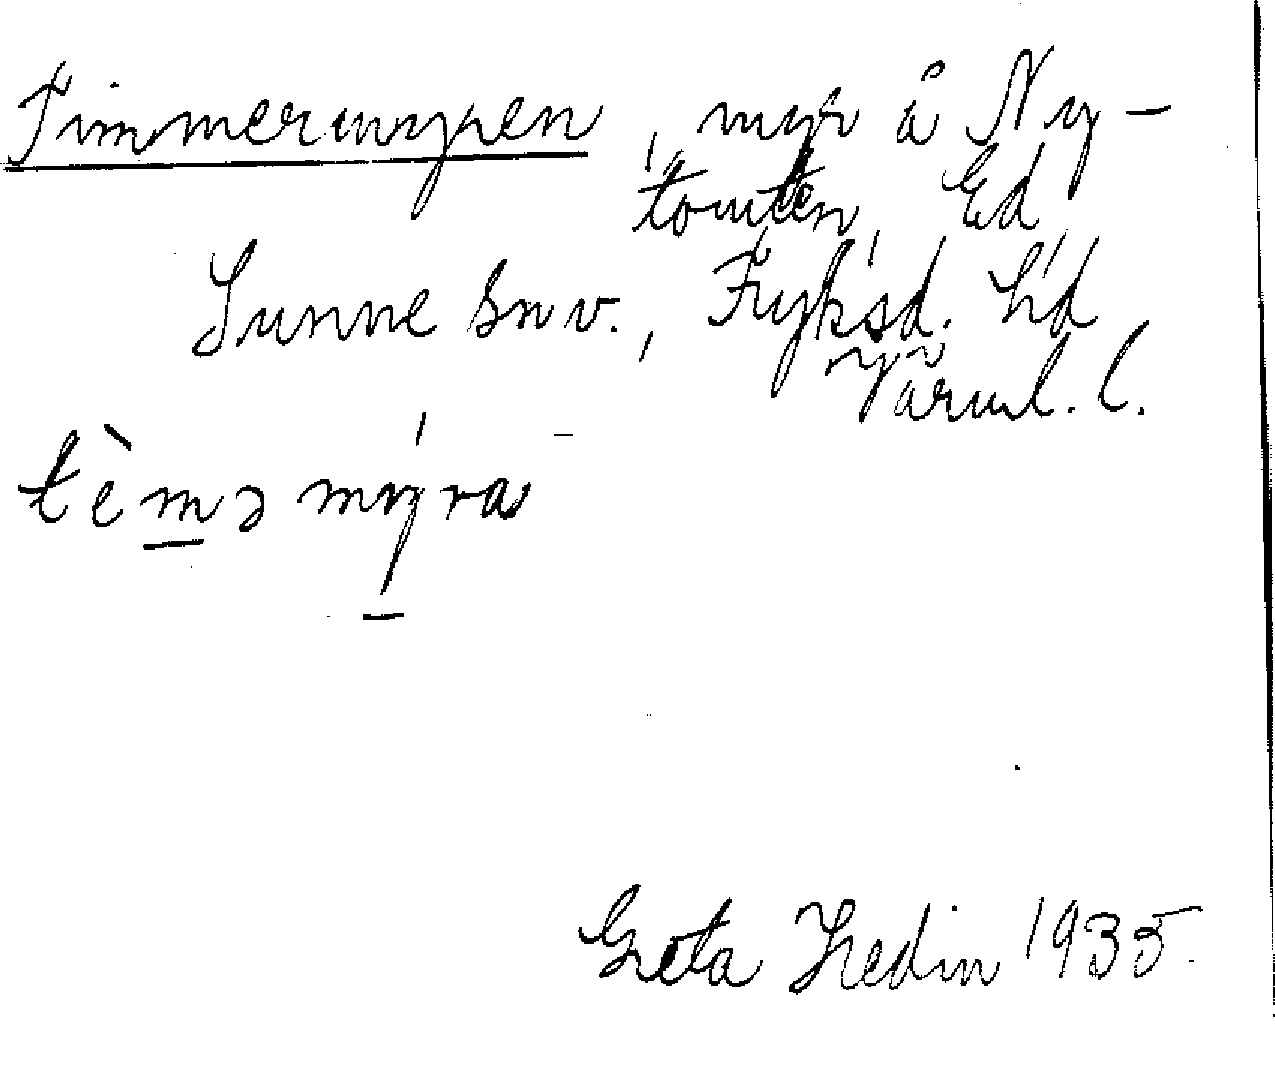 Timmermyren, myr å Ny-
tomten, Ed,
Sunne snv., Fryksd. hd
Värml. l.
tèmə mýra
Greta Hedin 1935.